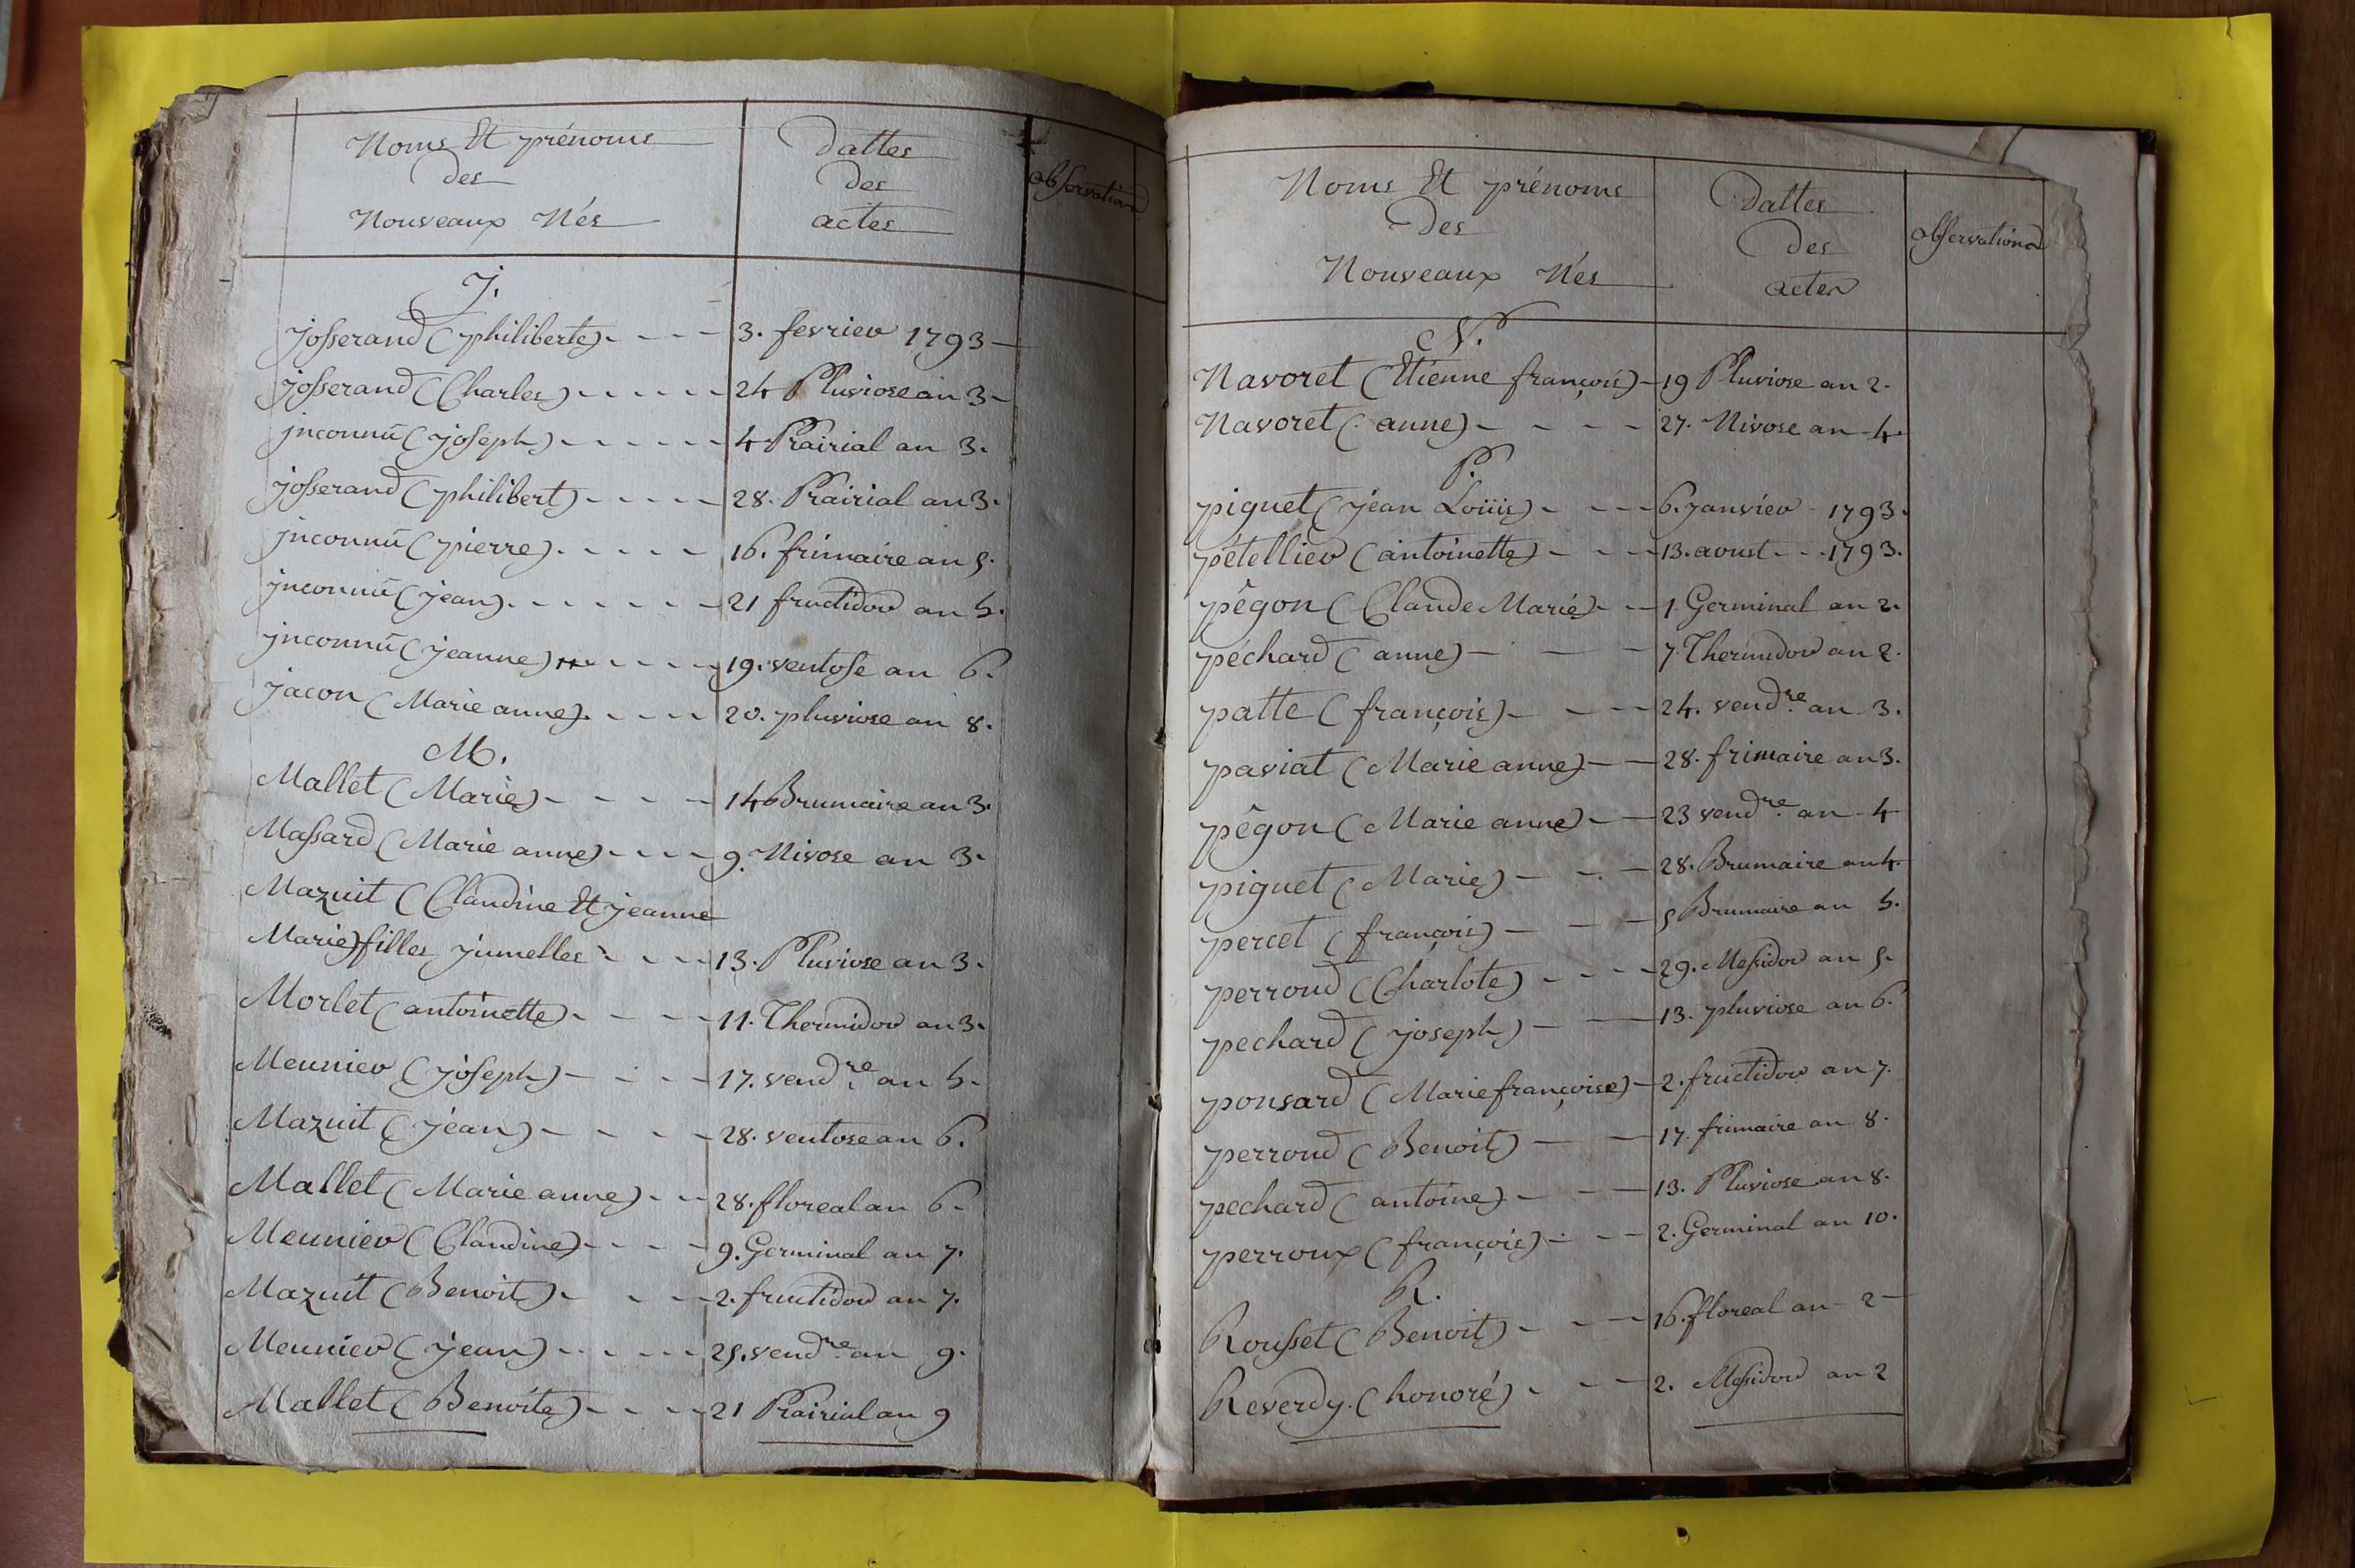 Noms Et prénoms
des
Nouveaux Nés
Dattes
des
actes
observations
J.
josserand (philiberte) - - - 3. fevrier 1793 -
josserand (Charles) - - - - - 24 Pluviose an 3 -
jnconnū (joseph) - - - - - 4 Prairial an 3.
josserand (philibert) - - - - - 28. Prairial an 3.
jnconnū (pierre) - - - - - 16. frimaire an 5.
jnconnū (jean) - - - - - - 21 fructidor an 5.
jnconnū (jeanne) - - - - 19. ventose an 6.
jacon (Marie anne) - - - - 20. pluviose an 8.
M.
Mallet (Marie) - - - - 14 Brumaire an 3.
Massard (Marie anne) - - - - 9. Nivose an 3.
Mazuit (Claudine Et jeanne
Marie) filles jumelles - - - 13. Pluviose an 3.
Morlet (antoinette) - - - - 11. Thermidor an 3.
Meunier (joseph) - - - - 17. vend.re an 5.
Mazuit (jean) - - - - 28. ventose an 6.
Mallet (Marie anne) - - 28. floreal an 6 -
Meunier (Claudine) - - - - 9. Germinal an 7.
Mazuit (Benoit) - - - 2. fructidor an 7.
Meunier (jean) - - - - - 25. vend.re an 9.
Mallet (Benoite) - - - - 21 Prairial an 9
Noms Et prénoms
des
Nouveaux Nés
Dattes
des
actes
observations
N.
Navoret (Etienne françois) - 19 Pluviose an 2.
Navoret (anne) - - - - 27. Nivose an - 4.
P.
piguet (jean Loüis) - - - - 6. janvier - 1793.
pétellier (antoinette) - - - 13. aoust - - 1793.
pêgon (Claude Marie) - - 1. Germinal an 2.
péchard (anne) - - - 7. Thermidor an 2.
patte (françois) - - - 24. vend.re an - 3.
paviat (Marie anne) - - 28. frimaire an 3.
pêgon (Marie anne) - - 23 vend.re an - 4
piguet (Marie) - - - 28. Brumaire an 4.
percet (françois) - - - 5 Brumaire an 5.
perroud (Charlote) - - - - 29. Messidor an 5.
pechard (joseph) - - 13. pluviose an 6.
ponsard (Marie françoise) - 2. fructidor an 7.
perroud (Benoit) - - 17. frimaire an 8.
pechard (antoine) - - - 13. Pluviose an 8.
perroux (françois) - - - 2. Germinal an 10.
R.
Rousset (Benoit) - - - 16. floreal an - 2 -
Reverdy (honoré) - - - 2. Messidor an 2